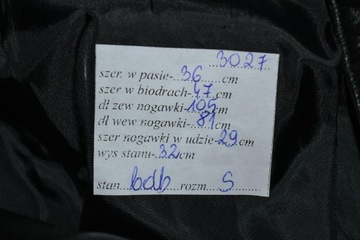 ...3027
szer. w pasie-...36......cm
szer w biodrach-47cm
dł zew nogawki-105cm
dł wew nogawki-81cm
szer nogawki w udzie-29cm
wys stanu-32cm
stan...bdb...rozm...S.......